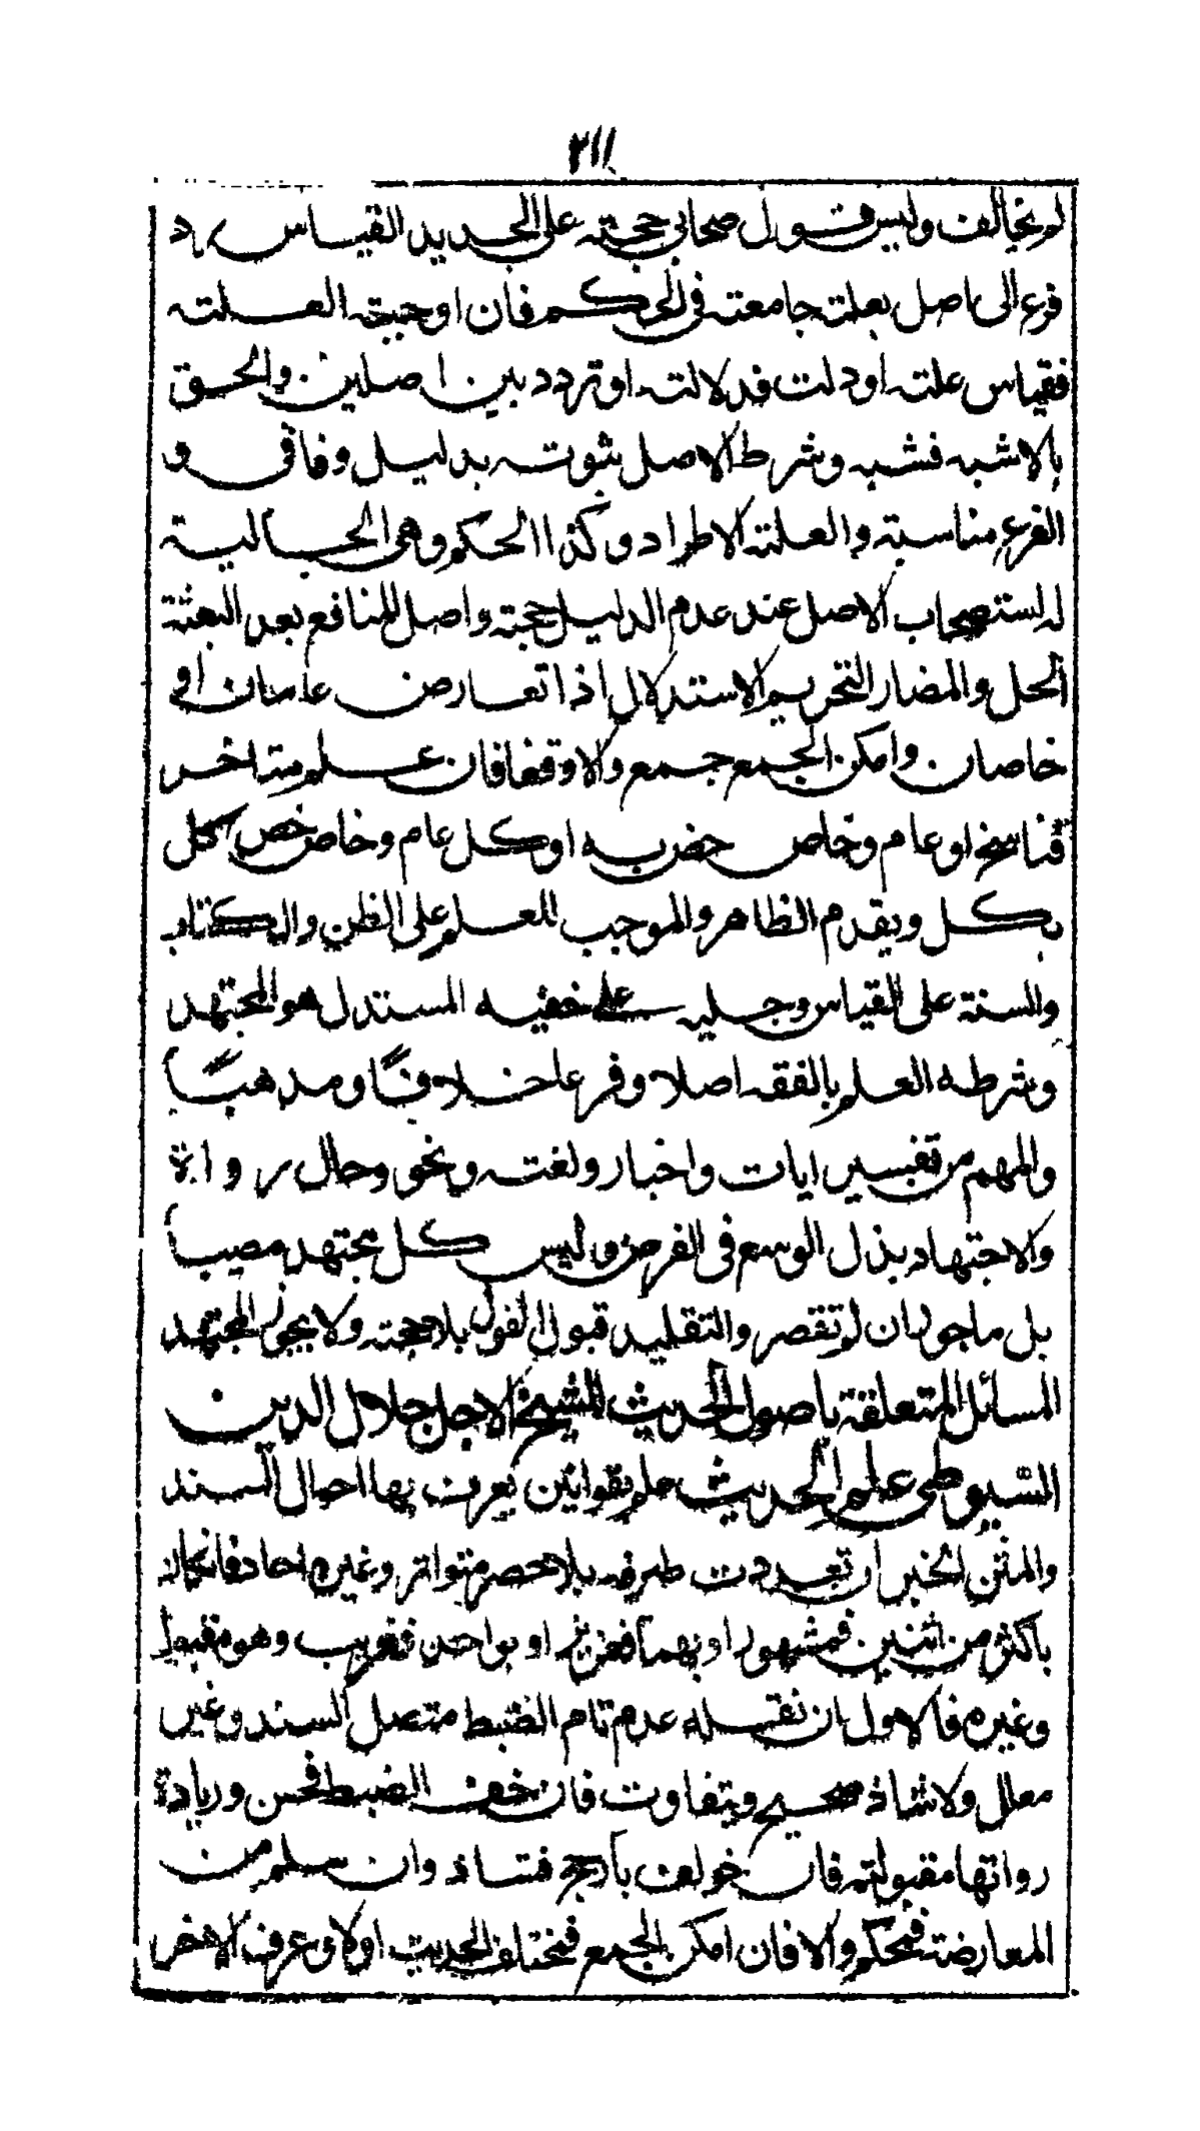 ٢١١
لم يخالف وليس قول صحابي حجة على الجديد القياس رد
فرع الى اصل بعلة جامعة في الحكم فان اوجبته العلة
فقياس علة او دلت فدلالة او تردد بين اصلين والحق
بالاشبه فشبه وشرط الاصل ثبوته بدليل وفاقي و
الفرع مناسبة والعلة الاطراد وكذا الحكم وهي الجالبة
له استصحاب الاصل عند عدم الدليل حجة واصل المنافع بعد البعثة
الحل والمضار التحريم الاستدلال اذا تعارض عامان او
خاصان وامكن الجمع جمع والا وقفا فان علم متاخر
فناسخ او عام وخاص خص به او كل عام وخاص خص كل
بكل ويقدم الظاهر والموجب للعلم على الظن والكتاب
والسنة على القياس وجليه على خفيه المستدل هو المجتهد
وشرطه العلم بالفقه اصلا وفرعا خلافًا ومذهبًا
والمهم من تفسير ايات واخبار ولغة ونحو وحال رواة
والاجتهاد بذل الوسع في الغرض وليس كل مجتهد مصيبا
بل ماجور ان لم تقصر والتقليد قبول القول بلا حجة ولا يجوز لمجتهد
المسائل المتعلقة باصول الحديث للشيخ الاجل جلال الدين
السّيوطى علم الحديث علم بقوانين يعرف بها احوال السند
والمتن الخبر ان تعددت طرقه بلا حصر متواتر وغيره احاد فان كان
باكثر من اثنين فمشهور او بهما فعزيز او بواحد فغريب وهو مقبول
وغيره فالاول ان نقله عدم تام الضبط متصل السند وغير
معلل ولا شاذ صحيح ويتفاوت فان خف الضبط فحسن وزيادة
رواتها مقبولة فان خولف بارجح فشاذ وان سلم من
المعارضة فمحكم والا فان امكن الجمع فمختلف الحديث اولا وعرف الاخر